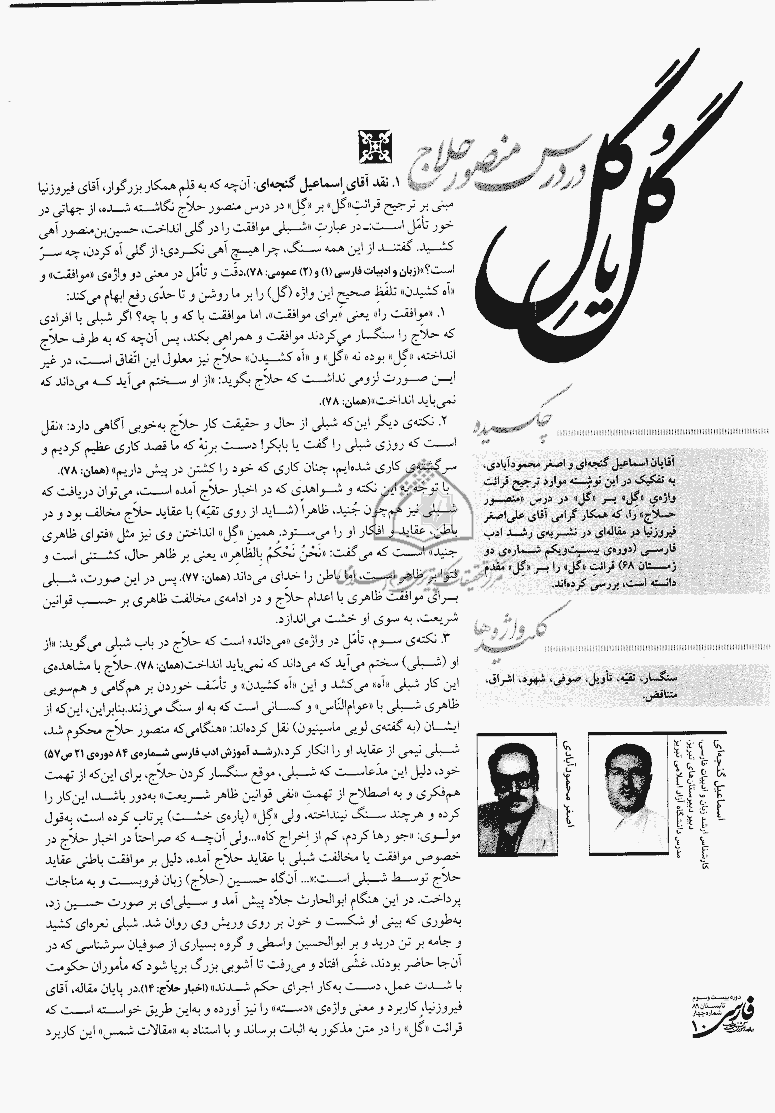 گُل یا گِل
در درس منصور حلاج
۱. نقد آقای اسماعیل گنجه‌ای: آن‌چه که به قلم همکار بزرگوار، آقای فیروزنیا
مبنی بر ترجیح قرائتِ«گُل» بر «گِل» در درس منصور حلاج نگاشته شده، از جهاتی در
خور تأمّل است:ـ در عبارتِ «شبلی موافقت را در گلی انداخت، حسین‌بن‌منصور آهی
کشید. گفتند از این همه سنگ، چرا هیچ آهی نکردی؛ از گلی آه کردن، چه سرّ
است؟»(زبان و ادبیات فارسی (۱) و (۲) عمومی: ۷۸)،دقّت و تأمّل در معنی دو واژه‌ی «موافقت» و
«آه کشیدن» تلفّظ صحیح این واژه (گل) را بر ما روشن و تا حدّی رفع ابهام می‌کند:
۱. «موافقت را» یعنی «برای موافقت»، اما موافقت با که و با چه؟ اگر شبلی با افرادی
که حلاج را سنگسار می‌کردند موافقت و همراهی بکند، پس آن‌چه که به طرف حلاج
انداخته، «گِل» بوده نه «گُل» و «آه کشیدن» حلاج نیز معلول این اتّفاق است، در غیر
این صورت لزومی نداشت که حلاج بگوید: «از او سختم می‌آید که می‌داند که
نمی‌باید انداخت»(همان: ۷۸).
۲. نکته‌ی دیگر این‌که شبلی از حال و حقیقت کار حلاج به‌خوبی آگاهی دارد: «نقل
است که روزی شبلی را گفت یا بابکر! دست برنِهْ که ما قصد کاری عظیم کردیم و
سرگشته‌ی کاری شده‌ایم، چنان کاری که خود را کشتن در پیش داریم» (همان: ۷۸).
با توجه به این نکته و شواهدی که در اخبار حلاج آمده است، می‌توان دریافت که
شبلی نیز هم‌چون جُنید، ظاهراً (شاید از روی تقیّه) با عقاید حلاج مخالف بود و در
باطن، عقاید و افکار او را می‌ستود. همین «گِل» انداختن وی نیز مثل «فتوای ظاهری
جنید» است که می‌گفت: «نَحْنُ نَحْکُمُ بِالظّاهِر»، یعنی بر ظاهر حال، کشتنی است و
فتوا بر ظاهر است، اما باطن را خدای می‌داند (همان: ۷۷)، پس در این صورت، شبلی
برای موافقت ظاهری با اعدام حلاج و در ادامه‌ی مخالفت ظاهری بر حسب قوانین
شریعت، به سوی او خشت می‌اندازد.
۳. نکته‌ی سوم، تأمّل در واژه‌ی «می‌داند» است که حلاج در باب شبلی می‌گوید: «از
او (شبلی) سختم می‌آید که می‌داند که نمی‌باید انداخت(همان: ۷۸). حلاج با مشاهده‌ی
این کار شبلی «آه» می‌کشد و این «آه کشیدن» و تأسّف خوردن بر هم‌گامی و هم‌سویی
ظاهری شبلی با «عوام‌النّاس» و کسانی است که به او سنگ می‌زنند.بنابراین، این‌که از
ایشان (به گفته‌ی لویی ماسینیون) نقل کرده‌اند: «هنگامی‌که منصور حلاج محکوم شد،
شبلی نیمی از عقاید او را انکار کرد،(رشد آموزش ادب فارسی شماره‌ی ۸۴ دوره‌ی ۲۱ ص۵۷)
خود، دلیل این مدّعاست که شبلی، موقع سنگسار کردن حلاج، برای این‌که از تهمت
هم‌فکری و به اصطلاح از تهمتِ «نفی قوانین ظاهر شریعت» به‌دور باشد، این‌کار را
کرده و هرچند سنگ نینداخته، ولی «گِل» (پاره‌ی خشت) پرتاب کرده است، به‌قول
مولوی: «جو رها کردم، کم از اخراج کاه»...ولی آن‌چه که صراحتاً در اخبار حلاج در
خصوص موافقت یا مخالفت شبلی با عقاید حلاج آمده، دلیل بر موافقت باطنی عقاید
حلاج توسط شبلی است:«... آن‌گاه حسین (حلاج) زبان فروبست و به مناجات
پرداخت. در این هنگام ابوالحارث جلّاد پیش آمد و سیلی‌ای بر صورت حسین زد،
به‌طوری که بینی او شکست و خون بر روی وریش وی روان شد. شبلی نعره‌ای کشید
و جامه بر تن درید و بر ابوالحسین واسطی و گروه بسیاری از صوفیان سرشناسی که در
آن‌جا حاضر بودند، غشّی افتاد و می‌رفت تا آشوبی بزرگ برپا شود که مأموران حکومت
با شدت عمل، دست به‌کار اجرای حکم شدند» (اخبار حلاج: ۱۴).در پایان مقاله، آقای
فیروزنیا، کاربرد و معنی واژه‌ی «دسته» را نیز آورده و به‌این طریق خواسته است که
قرائت «گُل» را در متن مذکور به اثبات برساند و با استناد به «مقالات شمس» این کاربرد
چکیده
آقایان اسماعیل گنجه‌ای و اصغر محمودآبادی،
به تفکیک در این نوشته موارد ترجیح قرائت
واژه‌ی «گِل» بر «گُل» در درس «منصور
حلاج» را، که همکار گرامی آقای علی‌اصغر
فیروزنیا در مقاله‌ای در نشریه‌ی رشد ادب
فارسی (دوره‌ی بیست‌ویکم شماره‌ی دو
زمستان ۶۸) قرائتِ «گُل» را بر «گِل» مقدم
دانسته است، بررسی کرده‌اند.
کلیدواژه‌ها
سنگسار، تقیّه، تأویل، صوفی، شهود، اشراق،
متناقض.
اسماعیل گنجه‌ای
کارشناس ارشد زبان و ادبیات فارسی،
دبیر دبیرستان‌های تبریز،
مدرس دانشگاه آزاد اسلامی تبریز
اصغر محمودآبادی
دوره بیست و سوم
تابستان ۸۹
شماره چهار
فارسی
۱۰